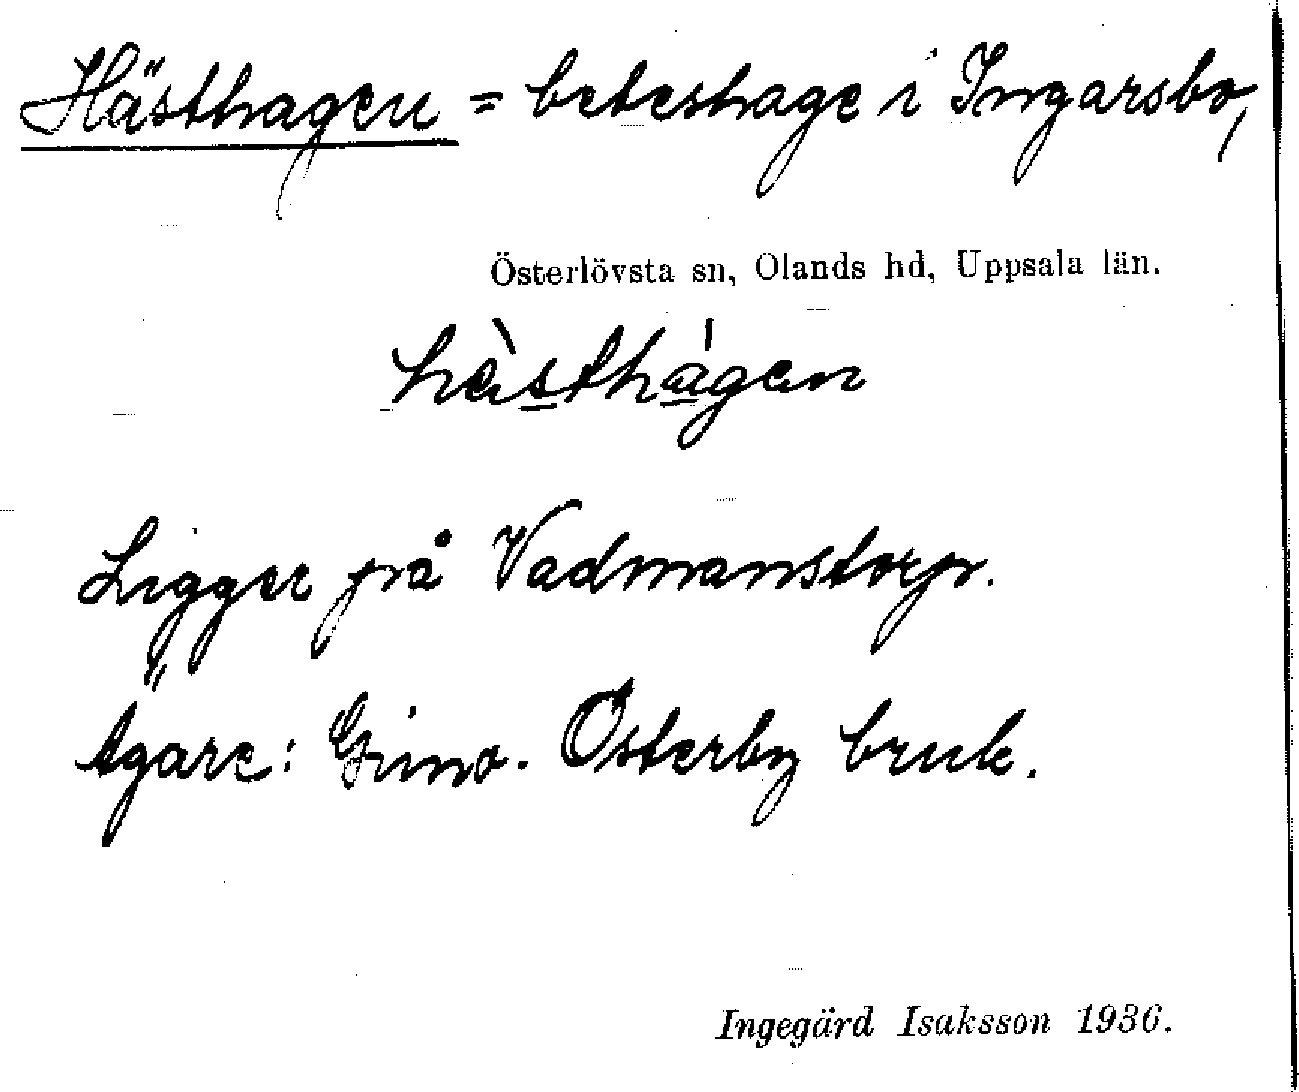 Hästhagen = beteshage i Ingarsbo,
Österlövsta sn, Olands hd, Uppsala län.
hèsthágen
Ligger på Vadmanstorp.
Ägare: Gimo. Österby bruk.
Ingegärd Isaksson 1936.